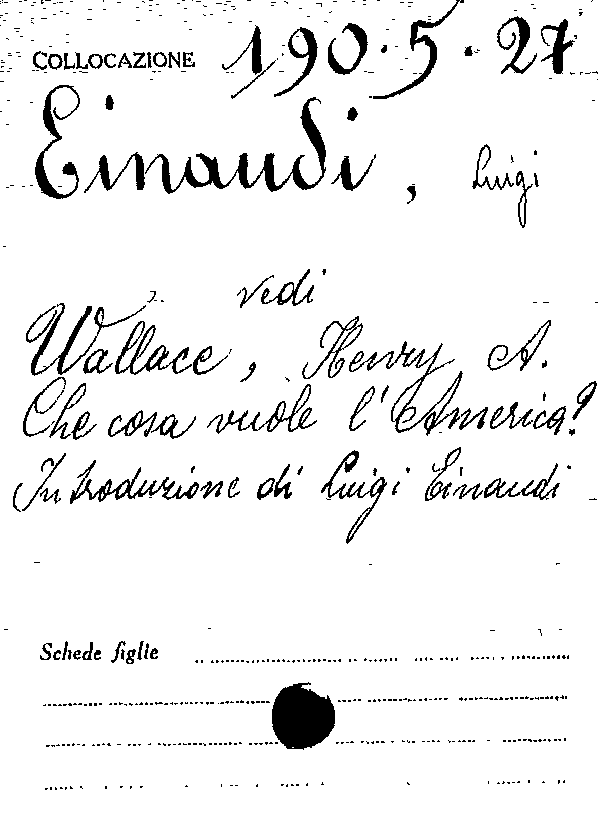 COLLOCAZIONE 190.5.27
Einaudi, Luigi
vedi
Wallace, Henry A.
Che cosa vuole l'America?
Introduzione di Luigi Einaudi
Schede figlie